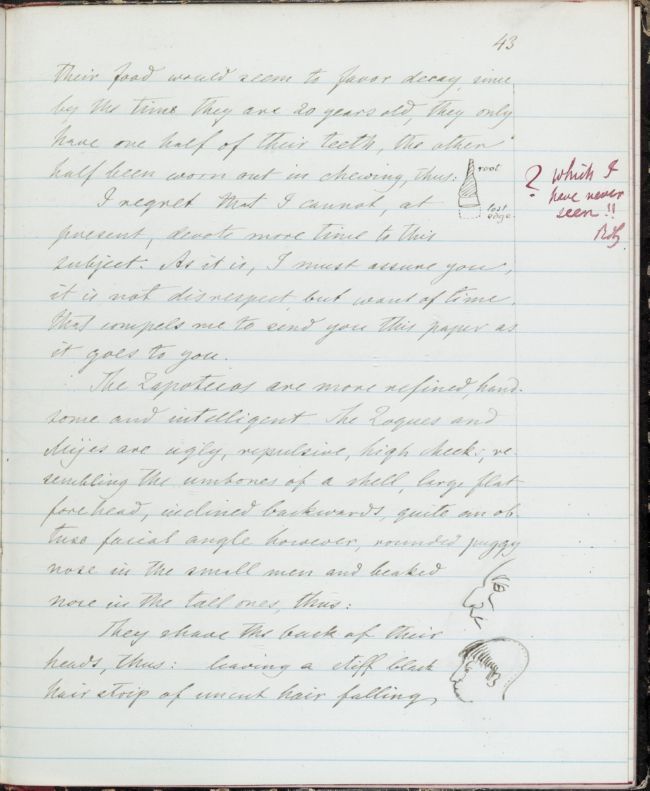 43
their food would seem to favor decay, since
by the time they are 20 years old, they only
have one half of their teeth, the other
half been worn out in chewing, thus:
root
lost
edge
? which I
have never
seen!!
I regret that I cannot, at
present, devote more time to this
subject. As it is, I must assure you,
it is not disrespect but want of time
that compels me to send you this paper as
it goes to you.
The Zapotecos are more refined, hand-
some and intelligent. The Zoques and
Mijes are ugly, repulsive, high cheeks, re-
sembling the umbones of a shell, large flat
forehead, inclined backwards, quite an ob-
tuse facial angle however, rounded puggy
nose in the small men and beaked
nose in the tall ones, thus:
They shave the back of their
heads, thus: leaving a stiff black
hair strip of uncut hair falling